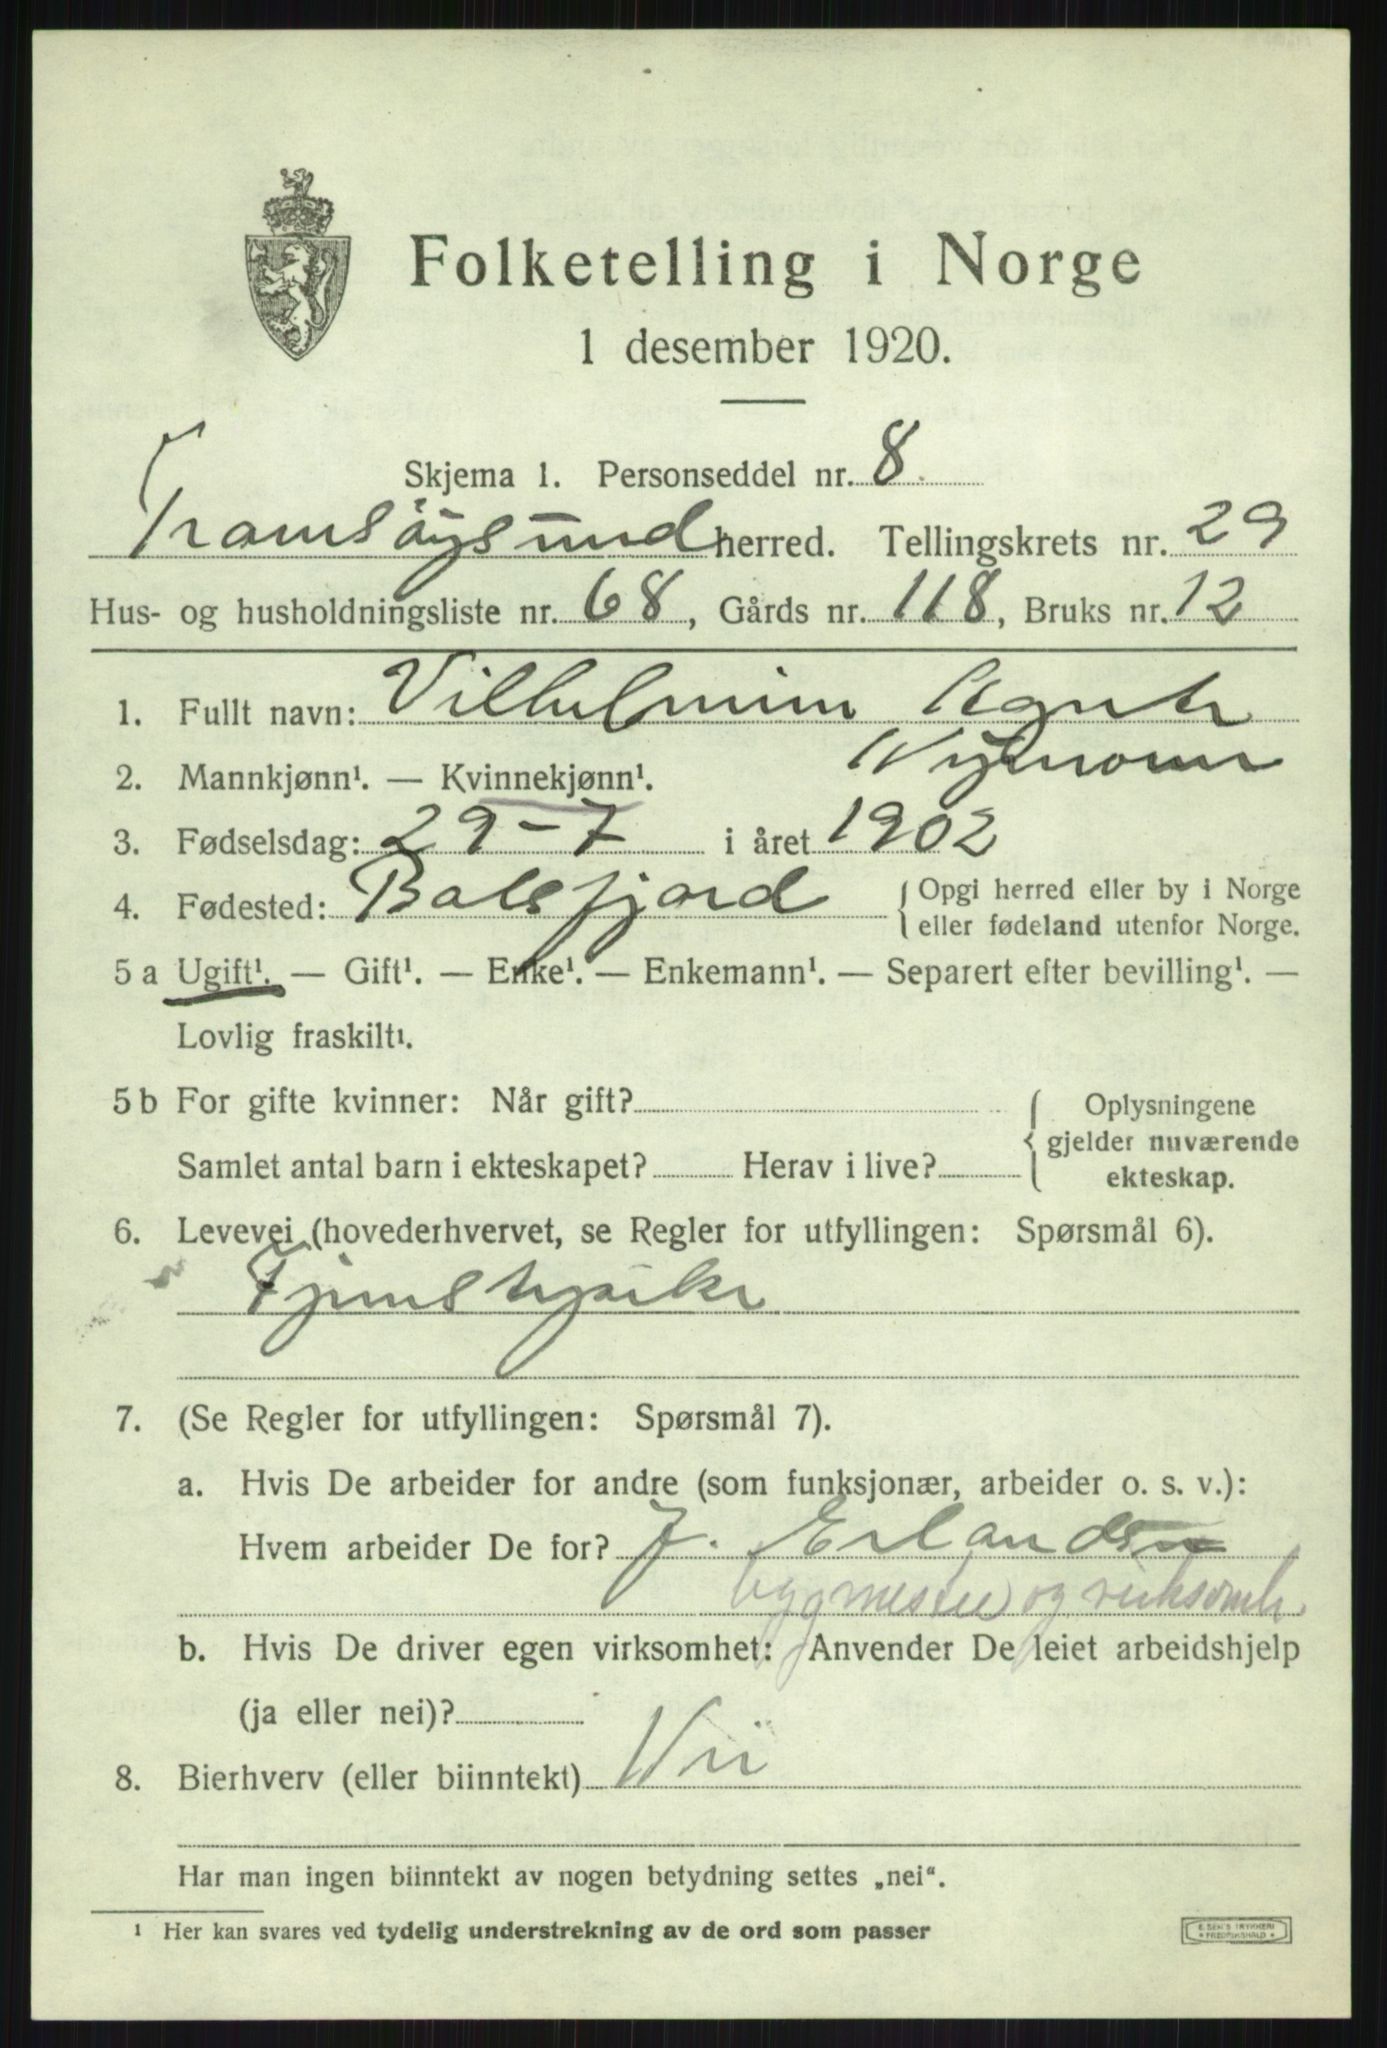 Folketelling i Norge
1 desember 1920.
Skjema 1. Personseddel nr. 8
Tromsøysund herred. Tellingskrets nr. 29
Hus- og husholdningsliste nr. 68, Gårds nr. 118, Bruks nr. 12
1. Fullt navn: Vilhelmine Agnete
Nymoen
2. Mannkjønn¹. — Kvinnekjønn¹.
3. Fødselsdag: 29-7 i året 1902
4. Fødested: Balsfjord { Opgi herred eller by i Norge
eller fødeland utenfor Norge.
5 a Ugift¹. — Gift¹. — Enke¹. — Enkemann¹. — Separert efter bevilling¹. —
Lovlig fraskilt¹.
5 b For gifte kvinner: Når gift? { Oplysningene
gjelder nuværende
Samlet antal barn i ekteskapet? Herav i live? ekteskap.
6. Levevei (hovederhvervet, se Regler for utfyllingen: Spørsmål 6).
Tjenstepike
7. (Se Regler for utfyllingen: Spørsmål 7).
a. Hvis De arbeider for andre (som funksjonær, arbeider o. s. v.):
Hvem arbeider De for? J. Erlandsen
bygmester og virksomh.
b. Hvis De driver egen virksomhet: Anvender De leiet arbeidshjelp
(ja eller nei)?
8. Bierhverv (eller biinntekt) Nei
Har man ingen biinntekt av nogen betydning settes „nei“.
¹ Her kan svares ved tydelig understrekning av de ord som passer
E. SEM'S TRYKKERI
FREDRIKSHALD